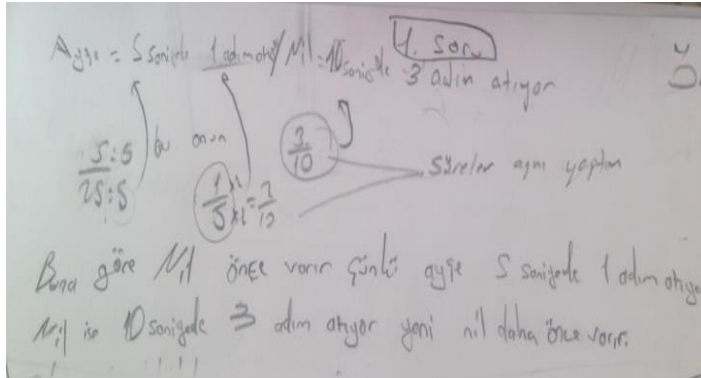 4. soru
Ayşe = 5 saniyede 1 adım atıyor / Nil = 10 saniyede 3 adım atıyor
5:5 / 25:5 bu onun 1/5 x2 x2 = 2/10 3/10 Süreler aynı yaptım
Buna göre Nil önce varır çünkü ayşe 5 saniyede 1 adım atıyor
Nil ise 10 saniyede 3 adım atıyor yani nil daha önce varır.